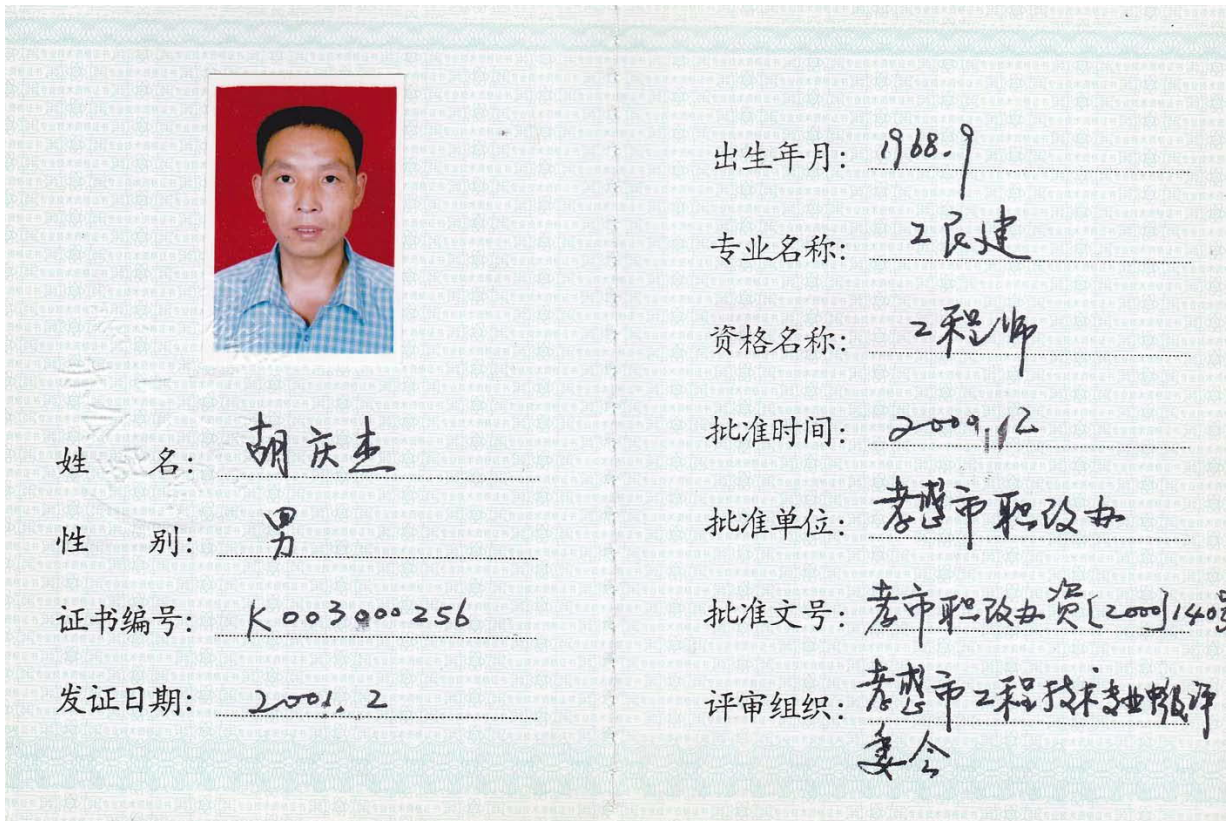 姓 名: 胡庆杰
性 别: 男
证书编号: K003000256
发证日期: 2001.2
出生年月: 1968.9
专业名称: 工民建
资格名称: 工程师
批准时间: 2000.12
批准单位: 孝感市职改办
批准文号: 孝市职改办资[2000]140号
评审组织: 孝感市工程技术专业中级评
委会